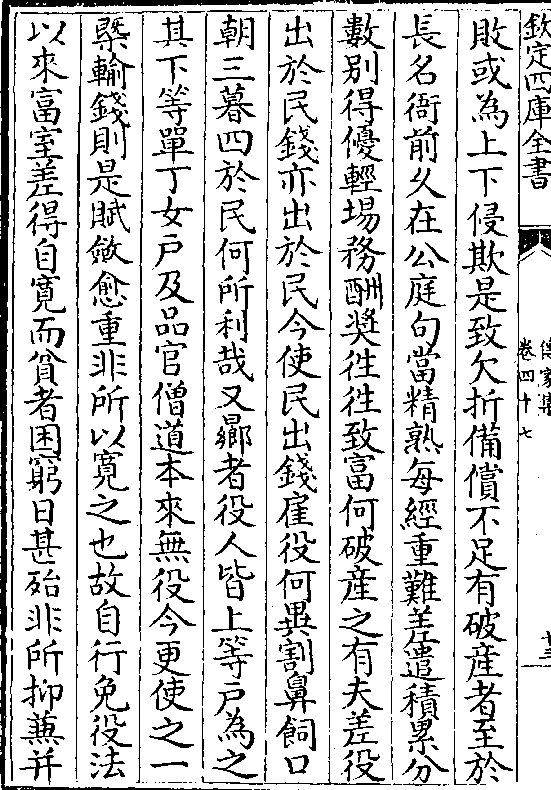 欽定四庫全書
傳家集
卷四十七
十三
敗或為上下侵欺是致欠折備償不足有破産者至於
長名衙前久在公庭句當精熟每經重難差遣積累分
數别得優輕場務酬奬徃徃致富何破産之有夫差役
出於民錢亦出於民今使民出錢雇役何異割鼻飼口
朝三暮四於民何所利哉又曏者役人皆上等戸為之
其下等單丁女戸及品官僧道本來無役今更使之一
槩輸錢則是賦斂愈重非所以寛之也故自行免役法
以來富室差得自寛而貧者困窮日甚殆非所抑蕪并